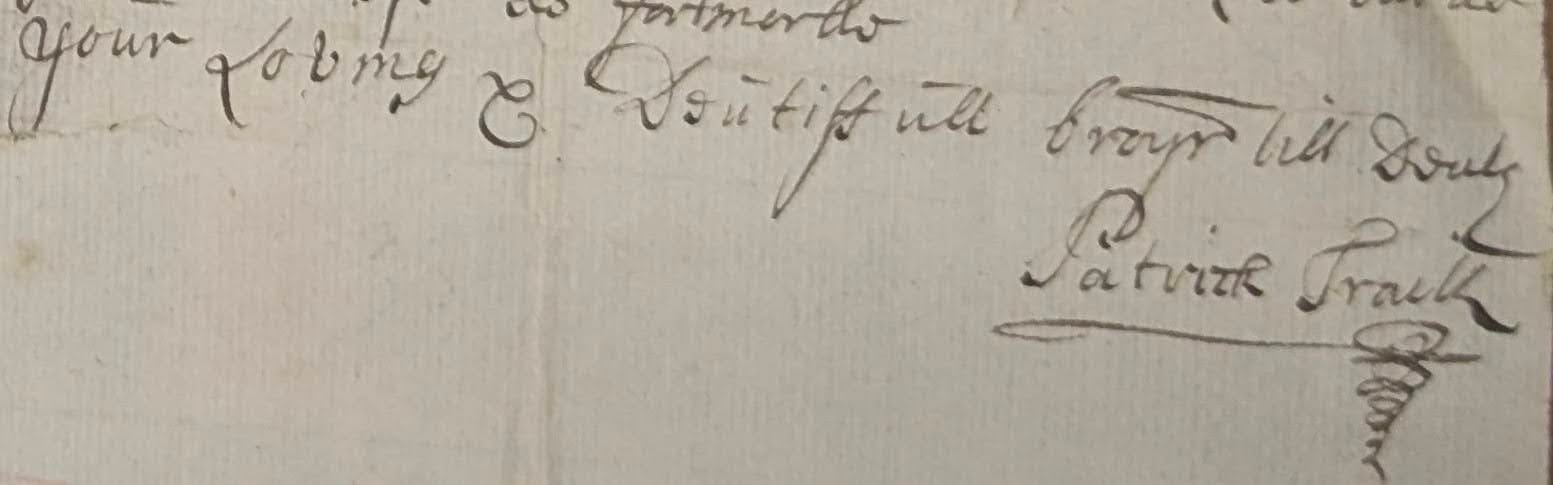 do fortmerllo
your Loving & Deutiffull broyr till Deuth
Patrick Traill